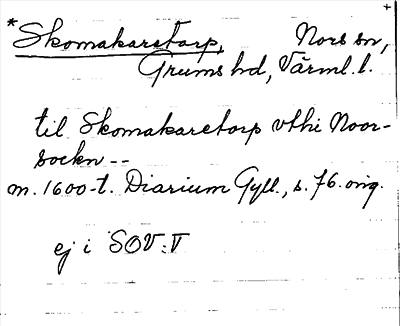 +
*Skomakaretorp, Nors sn,
Grums hd, Värml. l.
til Skomakaretorp vthi Noor-
sockn --
m. 1600-t. Diarium Gyll., s. 76. orig.
ej i SOV: V